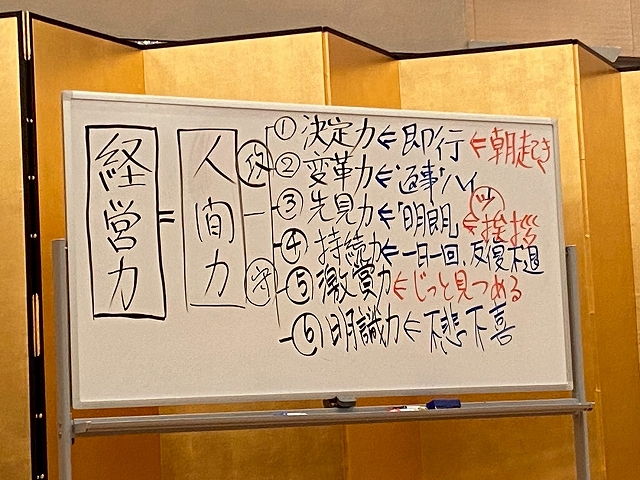 経営力
=
人間力
攻
守
①決定力⇐"即行"⇐朝起き
②変革力⇐"返事"ハイ
③先見力⇐"明朗"⇐挨拶
④持続力⇐一日一回、反復不退
⑤激賞力⇐じっと見つめる
⑥明識力⇐不悲不喜